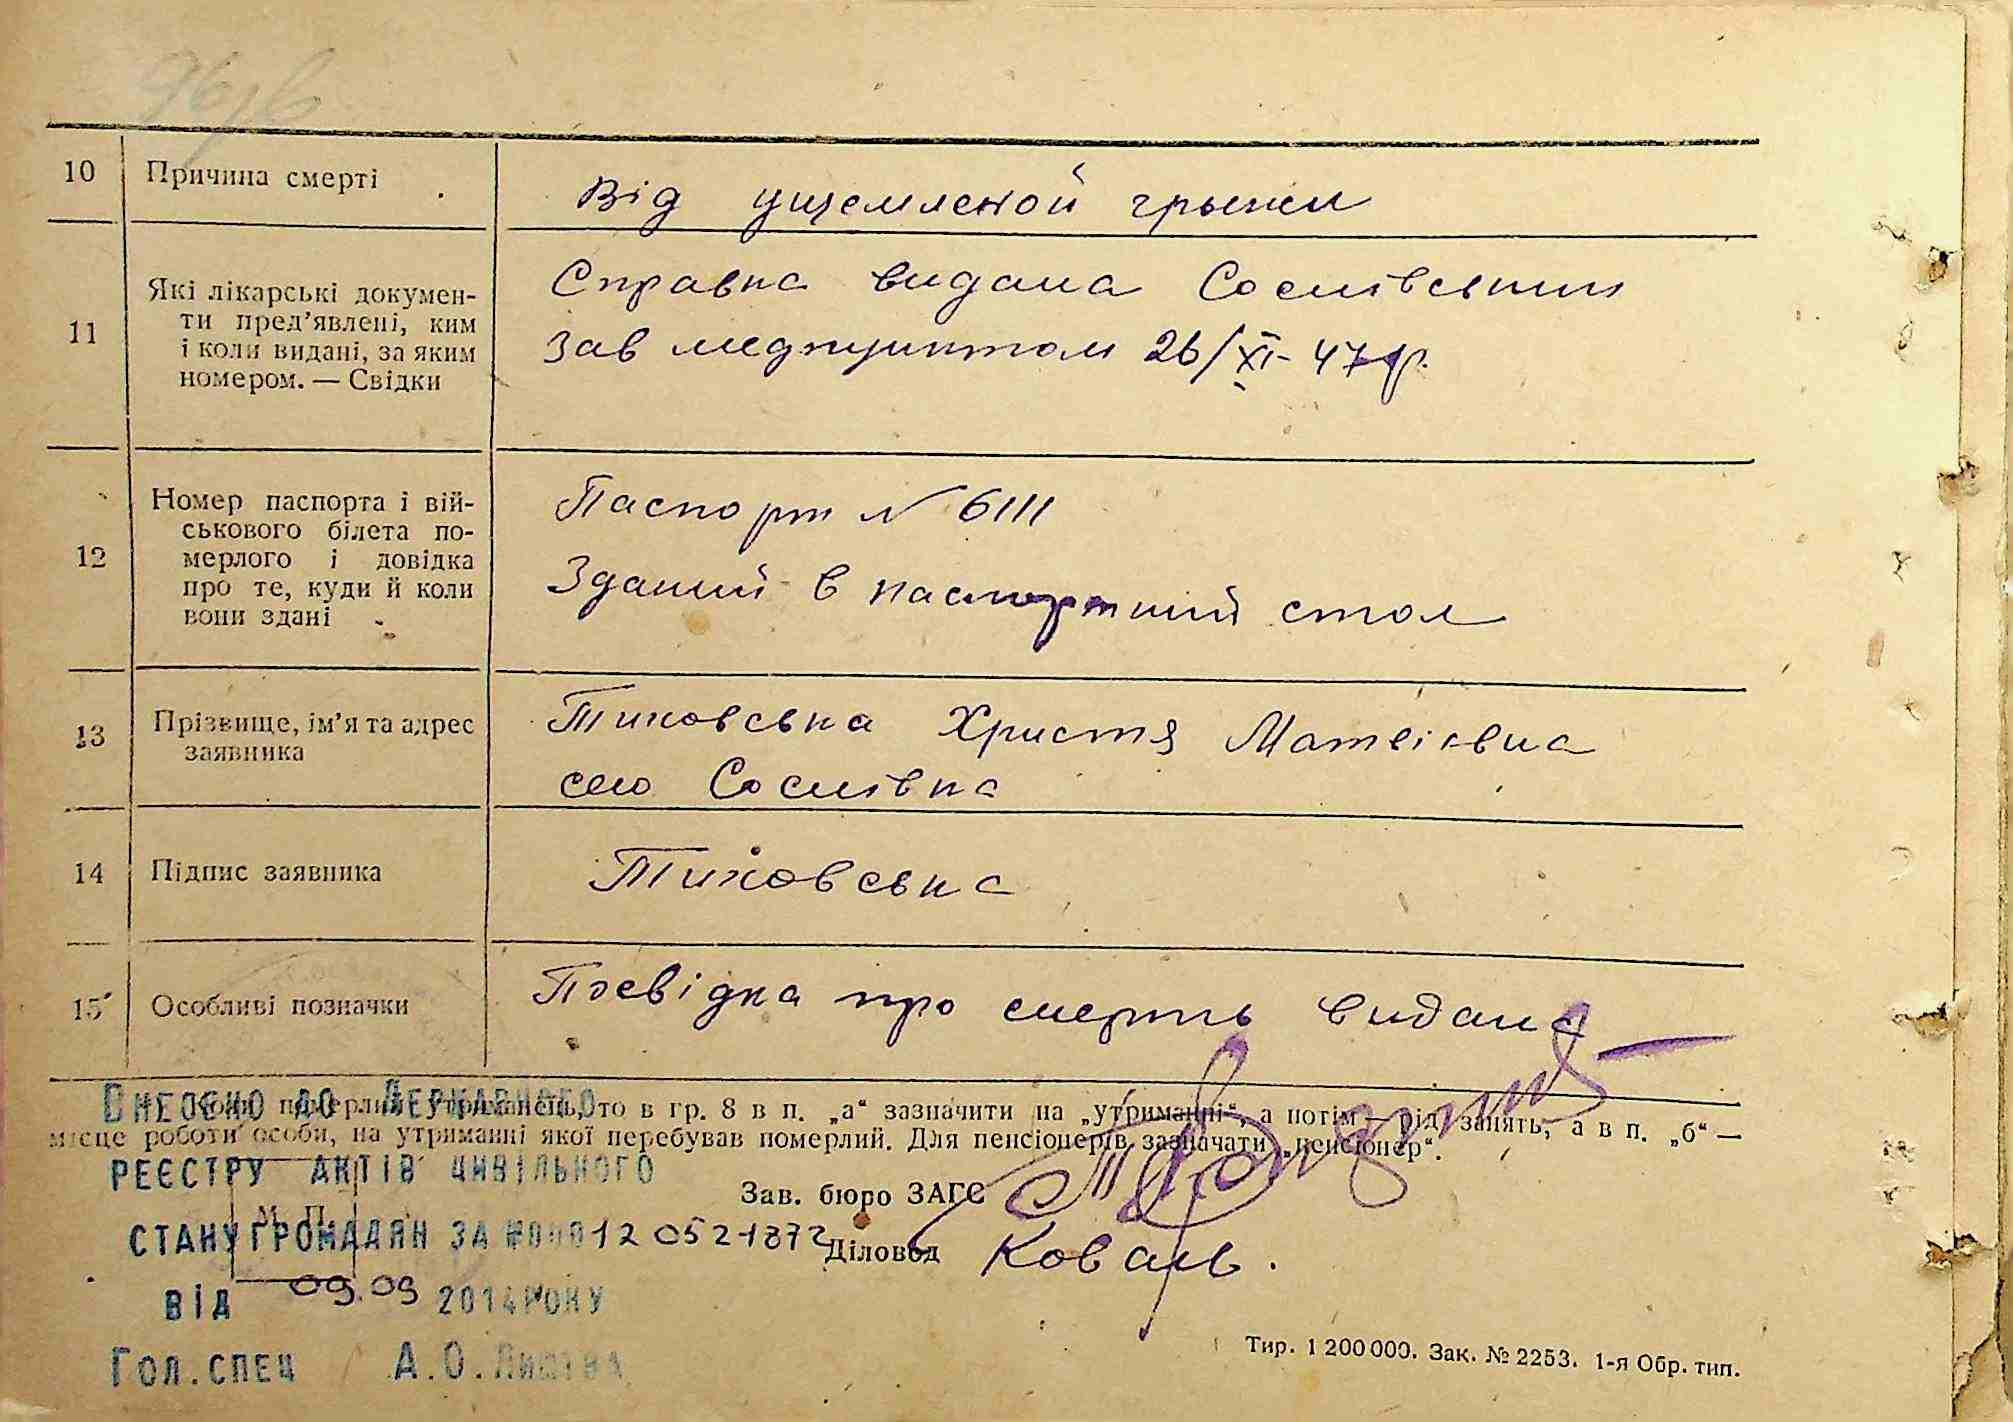 10 Причина смерті
Від ущемленой грыжи
11 Які лікарські докумен-
ти пред’явлені, ким
і коли видані, за яким
номером. — Свідки
Справка видана Соснівським
Зав медпунктом 26/XI-47 р.
12 Номер паспорта і вій-
ськового білета по-
мерлого і довідка
про те, куди й коли
вони здані
Паспорт № 6111
Зданий в паспортний стол
13 Прізвище, ім’я та адрес
заявника
Тиховська Христя Матвіївна
село Соснівка
14 Підпис заявника
Тиховська
15 Особливі позначки
Посвідка про смерть видана
Коли померлий утриманець, то в гр. 8 в п. „а“ зазначити на „утриманні“, а потім — рід занять, а в п. „б“ —
місце роботи особи, на утриманні якої перебував померлий. Для пенсіонерів зазначати „пенсіонер“.
Внесено до Державного
реєстру актів цивільного
стану громадян за №000120521872
від 09.09 2014 року
Гол. спец А.О.
М. П.
Зав. бюро ЗАГС
Діловод Коваль.
Тир. 1 200 000. Зак. № 2253. 1-я Обр. тип.